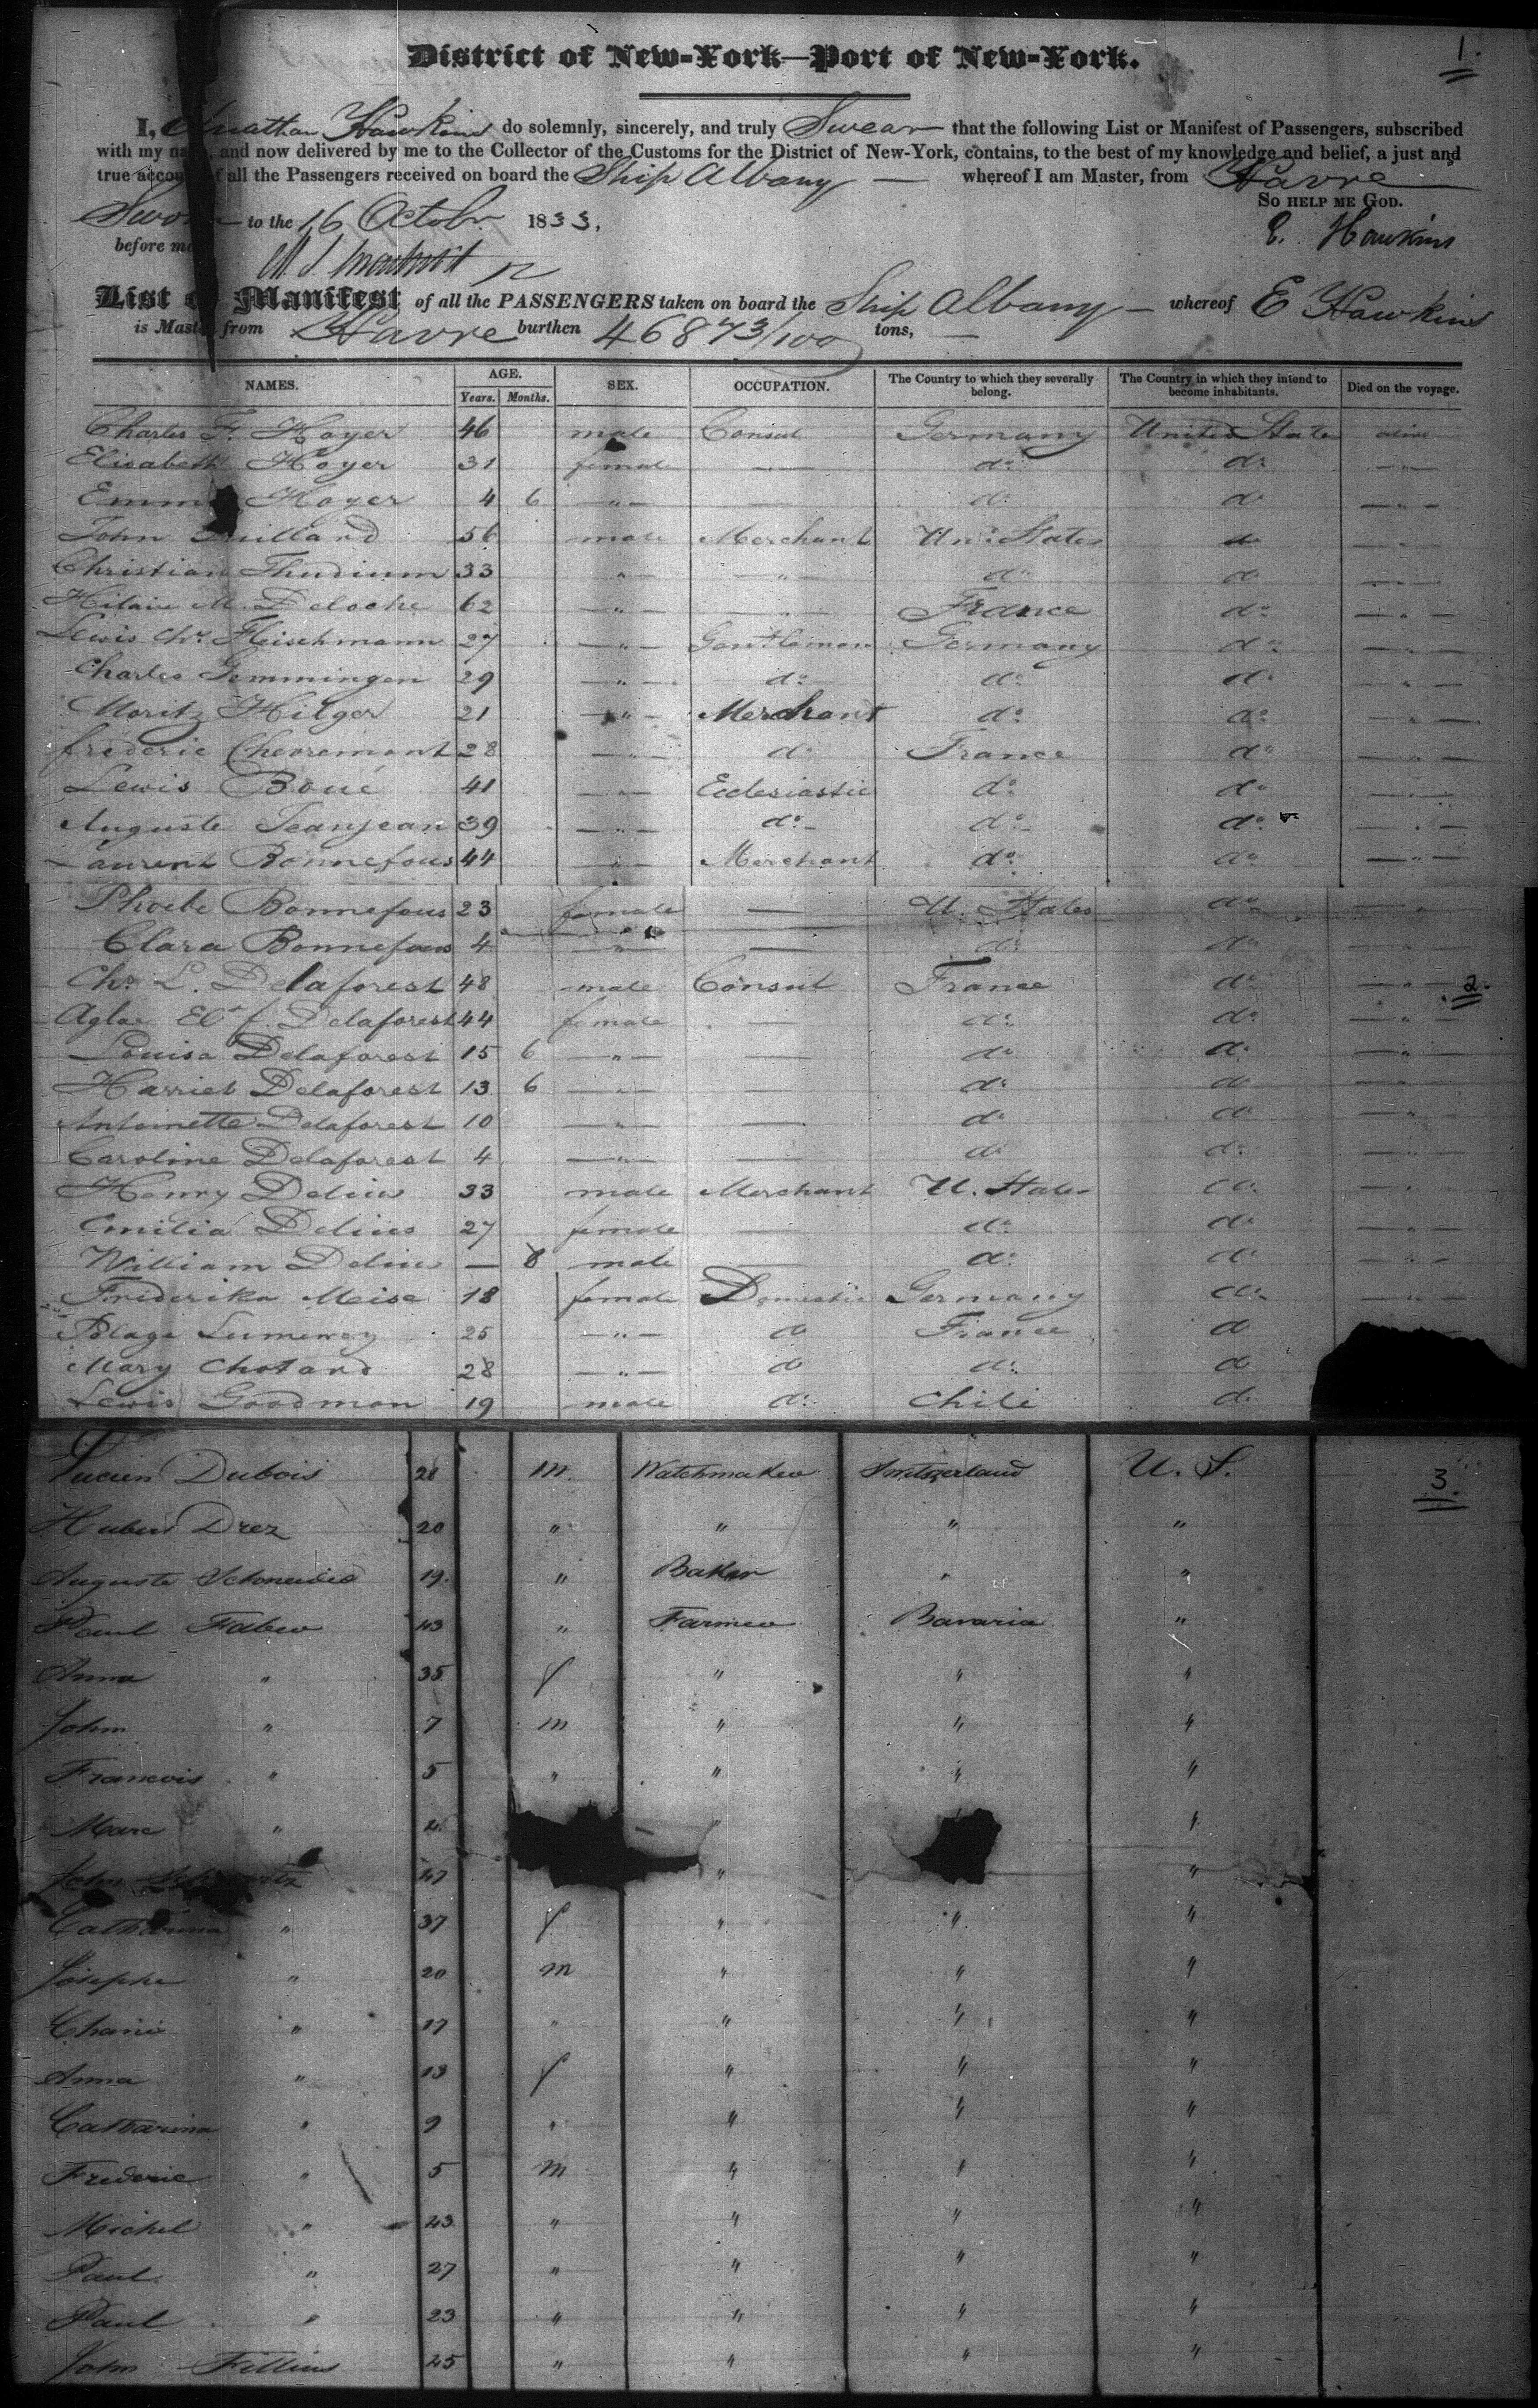 1.
District of New-York—Port of New-York.
I, Hawkins do solemnly, sincerely, and truly Swear that the following List or Manifest of Passengers, subscribed
with my and now delivered by me to the Collector of the Customs for the District of New-York, contains, to the best of my knowledge and belief, a just and
true all the Passengers received on board the Ship Albany — whereof I am Master, from Havre
to the 16 Octobr. 1833. SO HELP ME GOD.
before E. Hawkins
List Manifest of all the PASSENGERS taken on board the Ship Albany — whereof E Hawkins
is from Havre burthen 468 73/100 tons, —
NAMES. AGE. SEX. OCCUPATION. The Country to which they severally belong. The Country in which they intend to become inhabitants. Died on the voyage.
Years. Months.
Charles F. Hoyer 46 male Consul Germany United State
Elisabeth Hoyer 31 female — do do — " —
Hoyer 4 6 — " — — do do — " —
John 56 male Merchant Un: States do — " —
Christian Thudium 33 " — " — do do — " —
Hilaire M. Deloche 62 — " — — " — France do — " —
Lewis Chs. Fleischmann 27 — " — Gentleman Germany do — " —
Charles Gemmingen 29 — " — do do do — " —
Moritz Hilger 21 — " — Merchant do do — " —
frederic Chevremont 28 — " — do France do — " —
Lewis Boué 41 — " — Ecclesiastic do do — " —
Auguste Jeanjean 39 — " — do do do — " —
Laurent Bonnefous 44 — " — Merchant do do — " —
Phoebe Bonnefous 23 female — U. States do — " —
Clara Bonnefous 4 — " — — do do — " —
Chs. L. Delaforest 48 male Consul France do — " — 2.
Aglae f. Delaforest 44 female — do do — " —
Louisa Delaforest 15 6 — " — — do do — " —
Harriet Delaforest 13 6 — " — — do do — " —
Antoinette Delaforest 10 — " — — do do — " —
Caroline Delaforest 4 — " — — do do — " —
Henry Delius 33 male Merchant U. States do — " —
Emilia Delius 27 female — do do — " —
William Delius — 8 male — do do — " —
Frederika Meise 18 female Domestic Germany do — " —
25 — " — do France do
Mary Chotard 28 — " — do do do
Lewis Goodman 19 male do Chili do
Lucien Dubois 28 m. Watchmaker Switzerland U. S. 3.
Hubert Drez 20 " " " "
Auguste Schneider 19. " Baker " "
Paul Faber 43 " Farmer Bavaria "
Anna " 35 f " " "
John " 7 m " " "
Francois " 5 " " " "
Marc " " "
John 47 " "
Catharina " 37 f " " "
Josephe " 20 m " " "
" 17 " " " "
Anna " 13 f " " "
Catharina " 9 " " " "
Frederic " 5 m " " "
Michel " 23 " " " "
Paul " 27 " " " "
Paul " 23 " " " "
John 25 " " " "